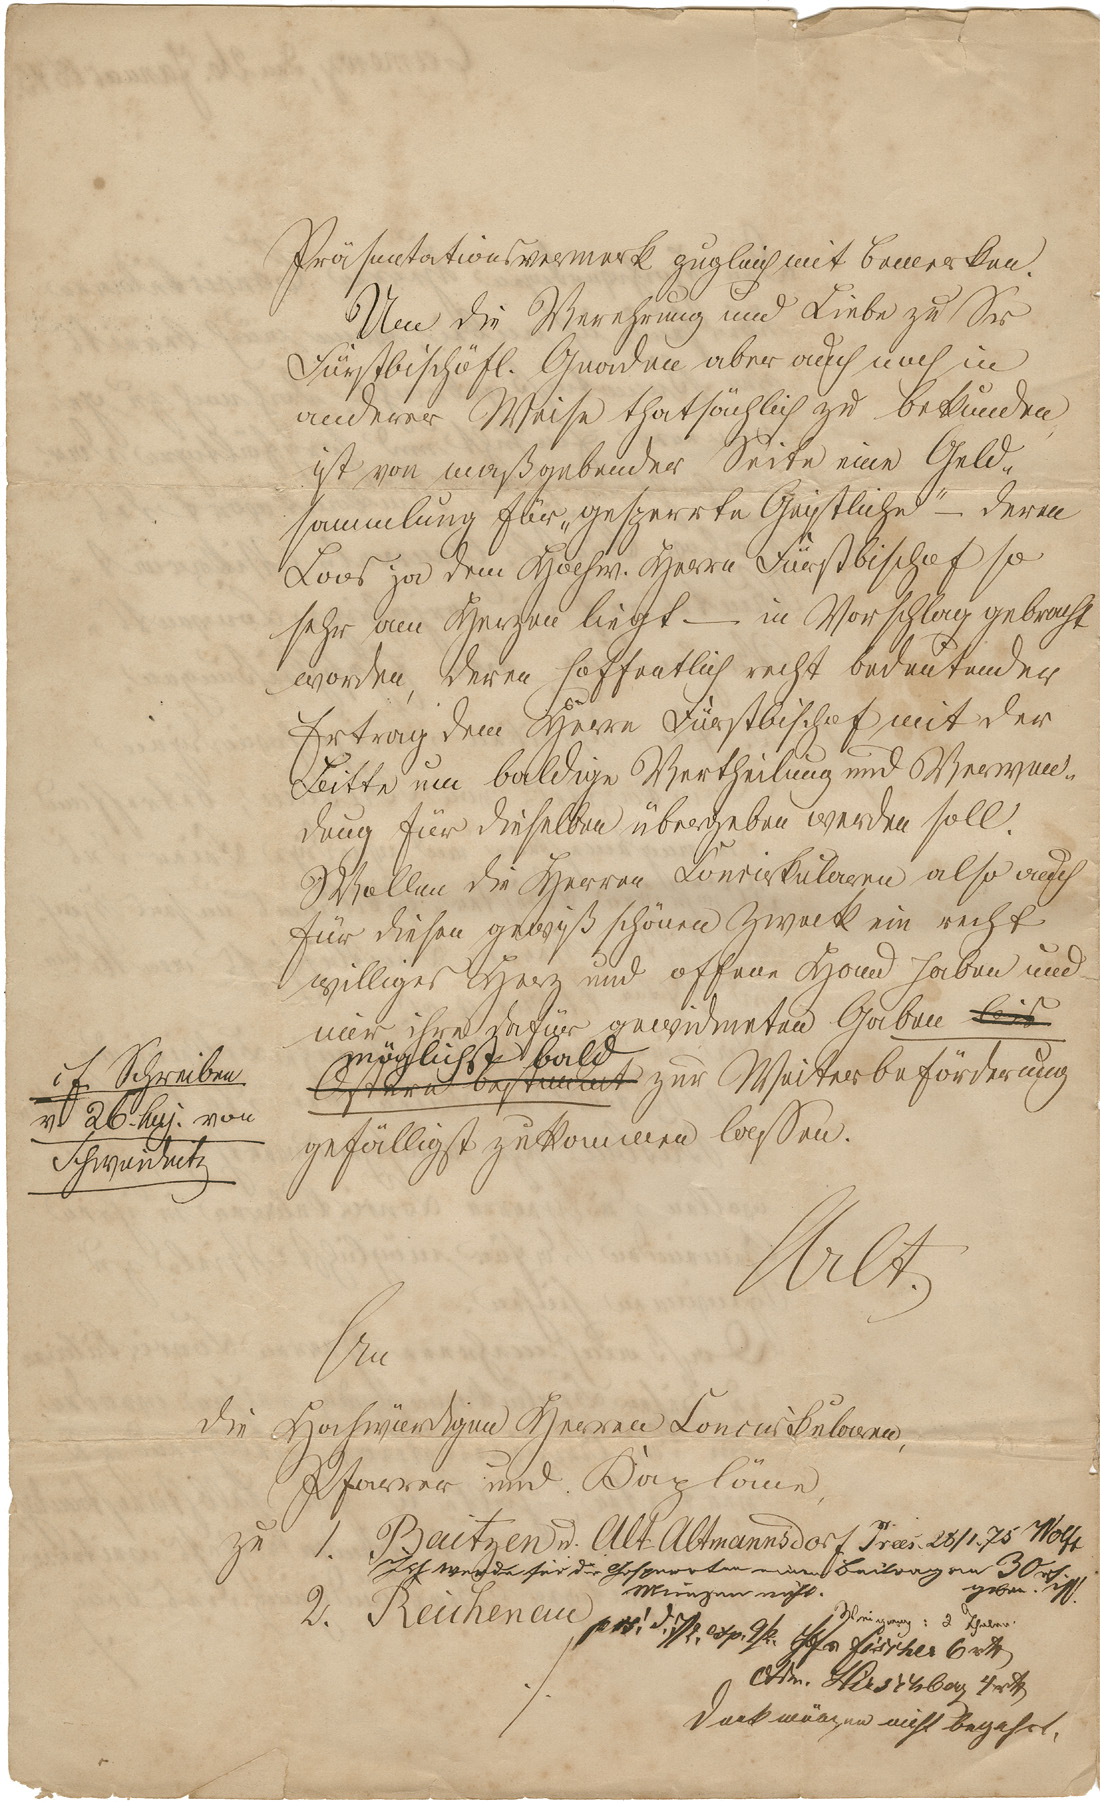 Präsentationsvermerk zugleich mit bemerken.
Um die Verehrung und Liebe zu Sr
Fürstbischöfl. Gnaden aber auch noch in
anderer Weise thatsächlich zu bekunden,
ist von maßgebender Seite eine Geld-
sammlung für „gesperrte Geistliche" – deren
Loos ja dem Hochw. Herrn Fürstbischof so
sehr am Herzen liegt – in Vorschlag gebracht
worden, deren hoffentlich recht bedeutender
Ertrag dem Herrn Fürstbischof mit der
Bitte um baldige Vertheilung und Verwen-
dung für dieselben übergeben werden soll.
Wollen die Herren Concirkularen also auch
für diesen gewiß schönen Zweck ein recht
williges Herz und offene Hand haben und
mir ihre dafür gewidmeten Gaben bis
möglichst bald
Ostern bestimmt zur Weiterbeförderung
gefälligst zukommen lassen.
cf Schreiben
v 26. huj. von
Schweidnitz
Arlt.
An
die Hochwürdigen Herren Concirkularen,
Pfarrer und Kapläne,
zu 1. Baitzen u. Alt Altmannsdorf Präs. 28/1.75 Wolff
Ich werde für die Gesperrten einen Beitrag von 30 rt.
Münzen nicht. geben.
2. Reichenau
2 Thaler.
Fischer 6 rt
Hirschberg 4 rt
Denkmünzen nicht begehrt.